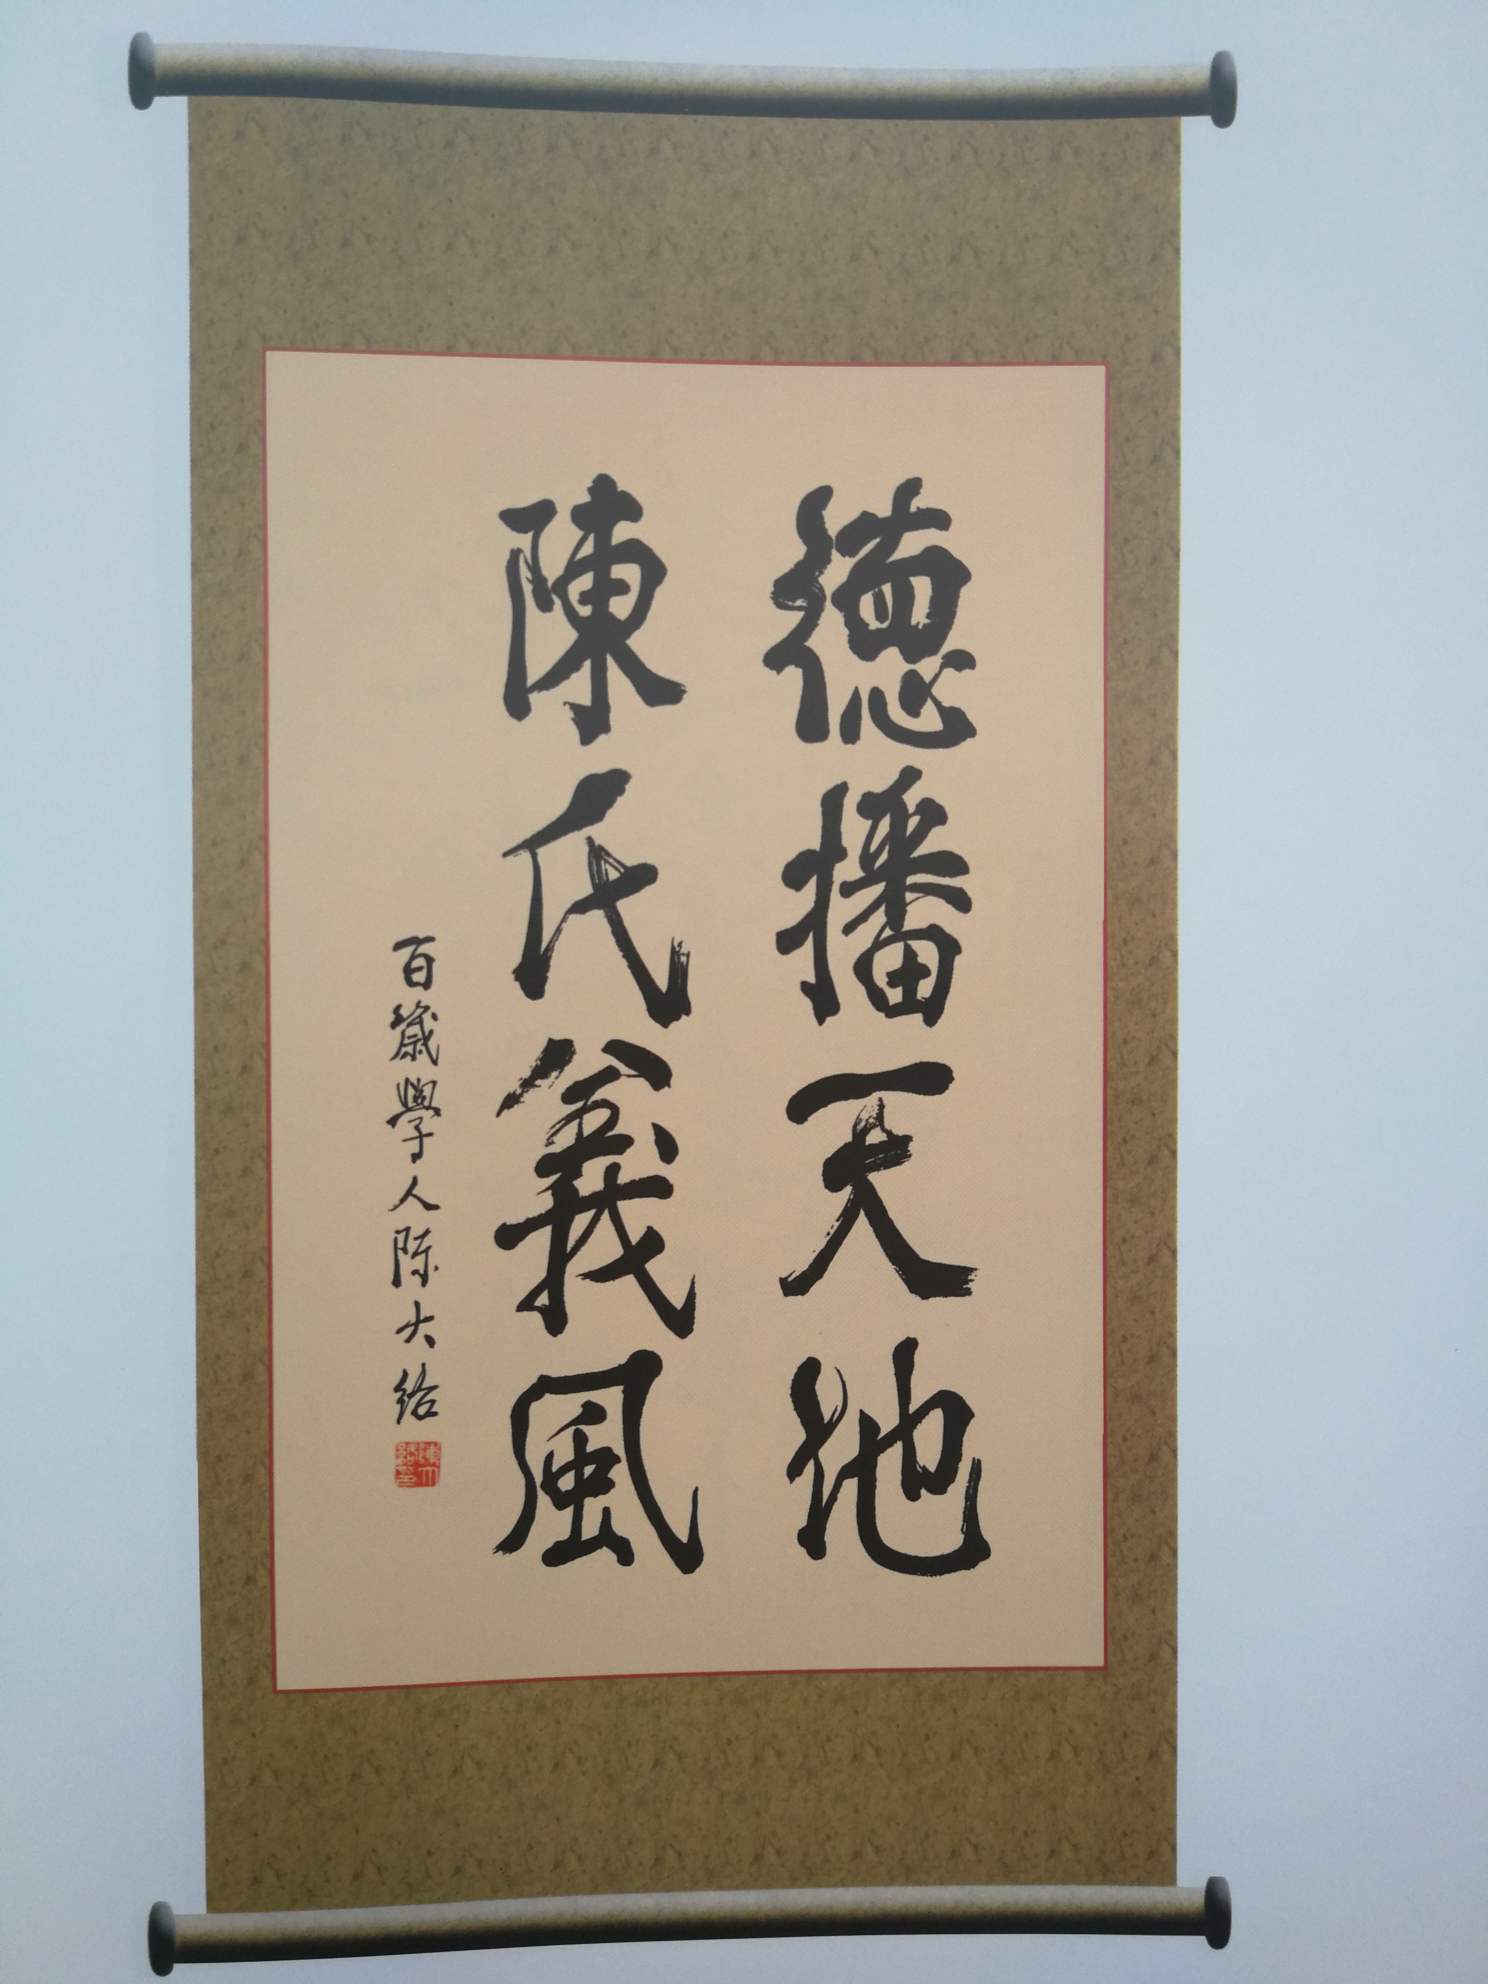 德播天地
陳氏義風
百歲學人陈大络